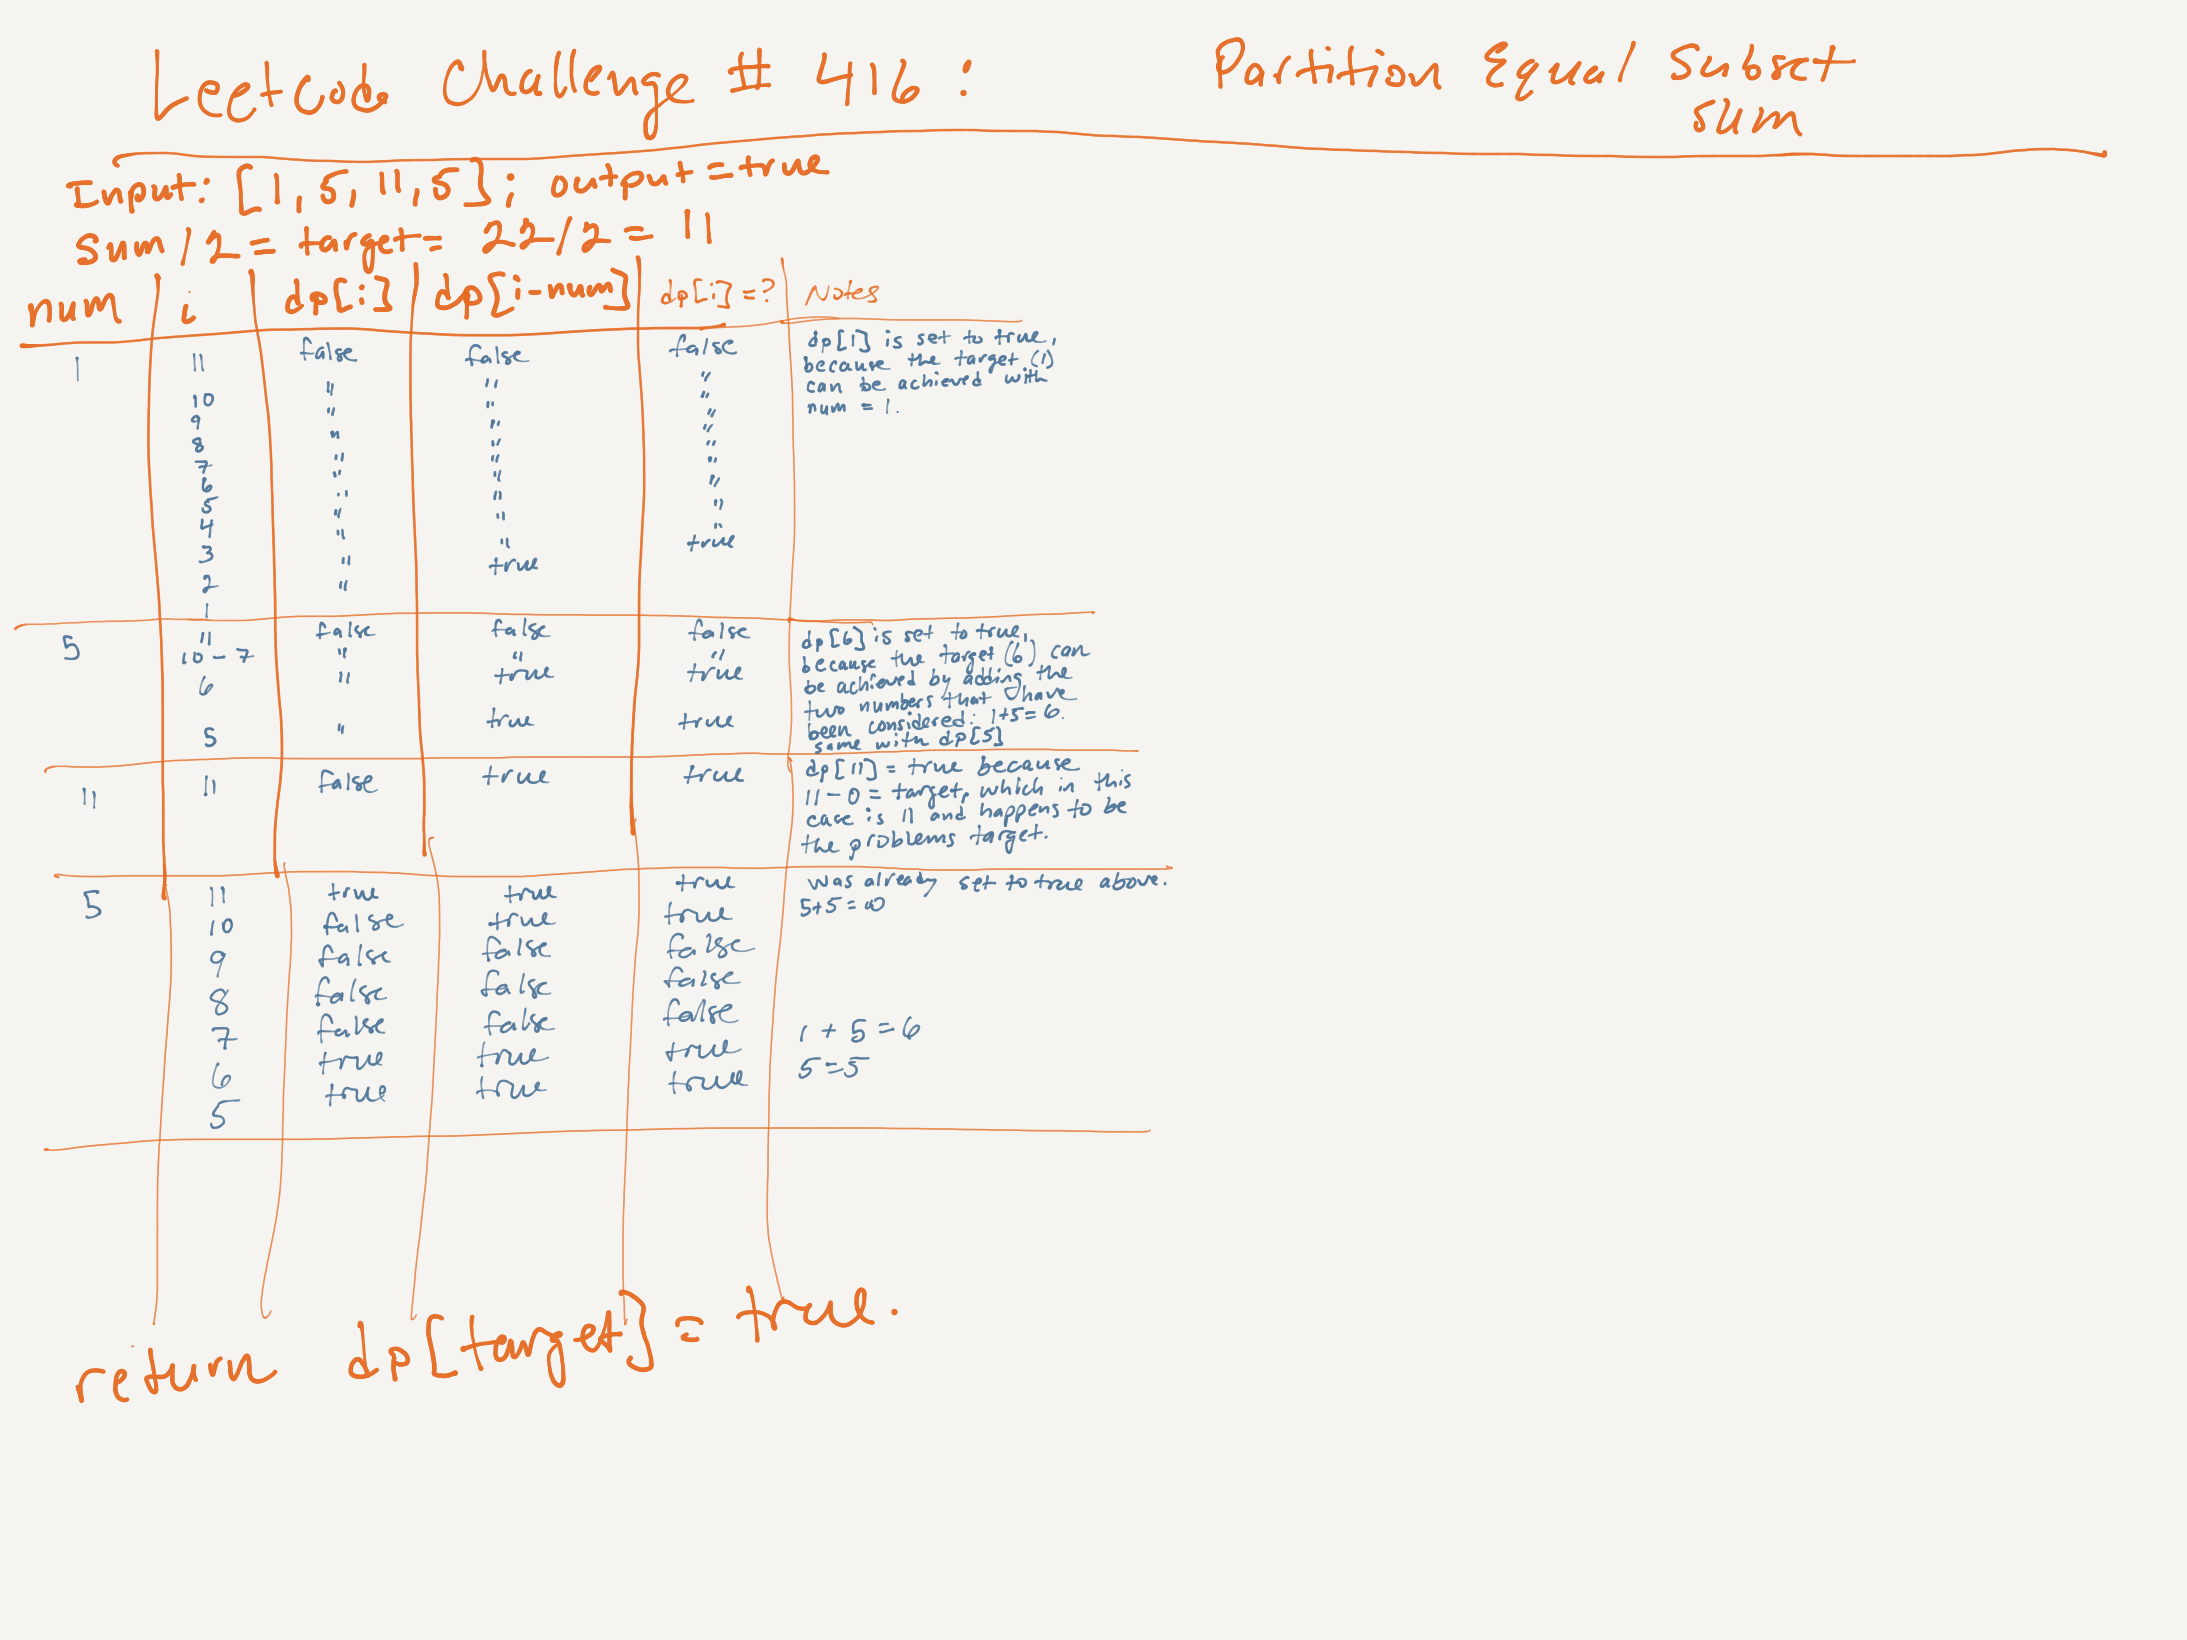 Leetcode Challenge # 416 : Partition Equal Subset
Sum
Input: [1, 5, 11, 5]; output = true
Sum / 2 = target = 22/2 = 11
num i dp[i] dp[i-num] dp[i]=? Notes
1 11 false false false dp[1] is set to true,
because the target (1)
10 " " " can be achieved with
9 " " " num = 1.
8 " " "
7 " " "
6 " " "
5 " " "
4 " " "
3 " " "
2 " " "
1 " true true
5 11 false false false dp[6] is set to true,
10-7 " " " because the target (6) can
6 " true true be achieved by adding the
two numbers that have
5 " true true been considered: 1+5=6.
same with dp[5]
11 11 false true true dp[11] = true because
11-0 = target, which in this
case is 11 and happens to be
the problems target.
5 11 true true true was already set to true above.
10 false true true 5+5=10
9 false false false
8 false false false
7 false false false
6 true true true 1 + 5 = 6
5 true true true 5=5
return dp[target] = true.